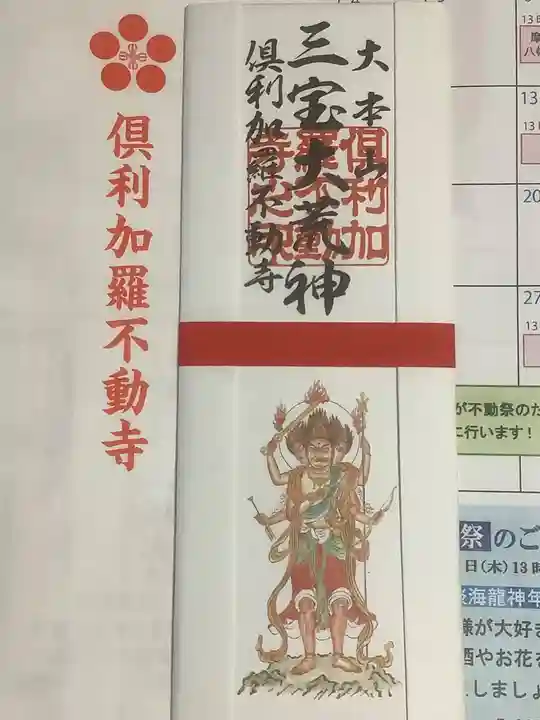 倶利加羅不動寺
大本山
三宝大荒神
倶利加羅不動寺
13
20
27
が不動祭のた
に行います！
祭のご
日(木)13時
海龍神年
様が大好き
酒やお花を
しましょ